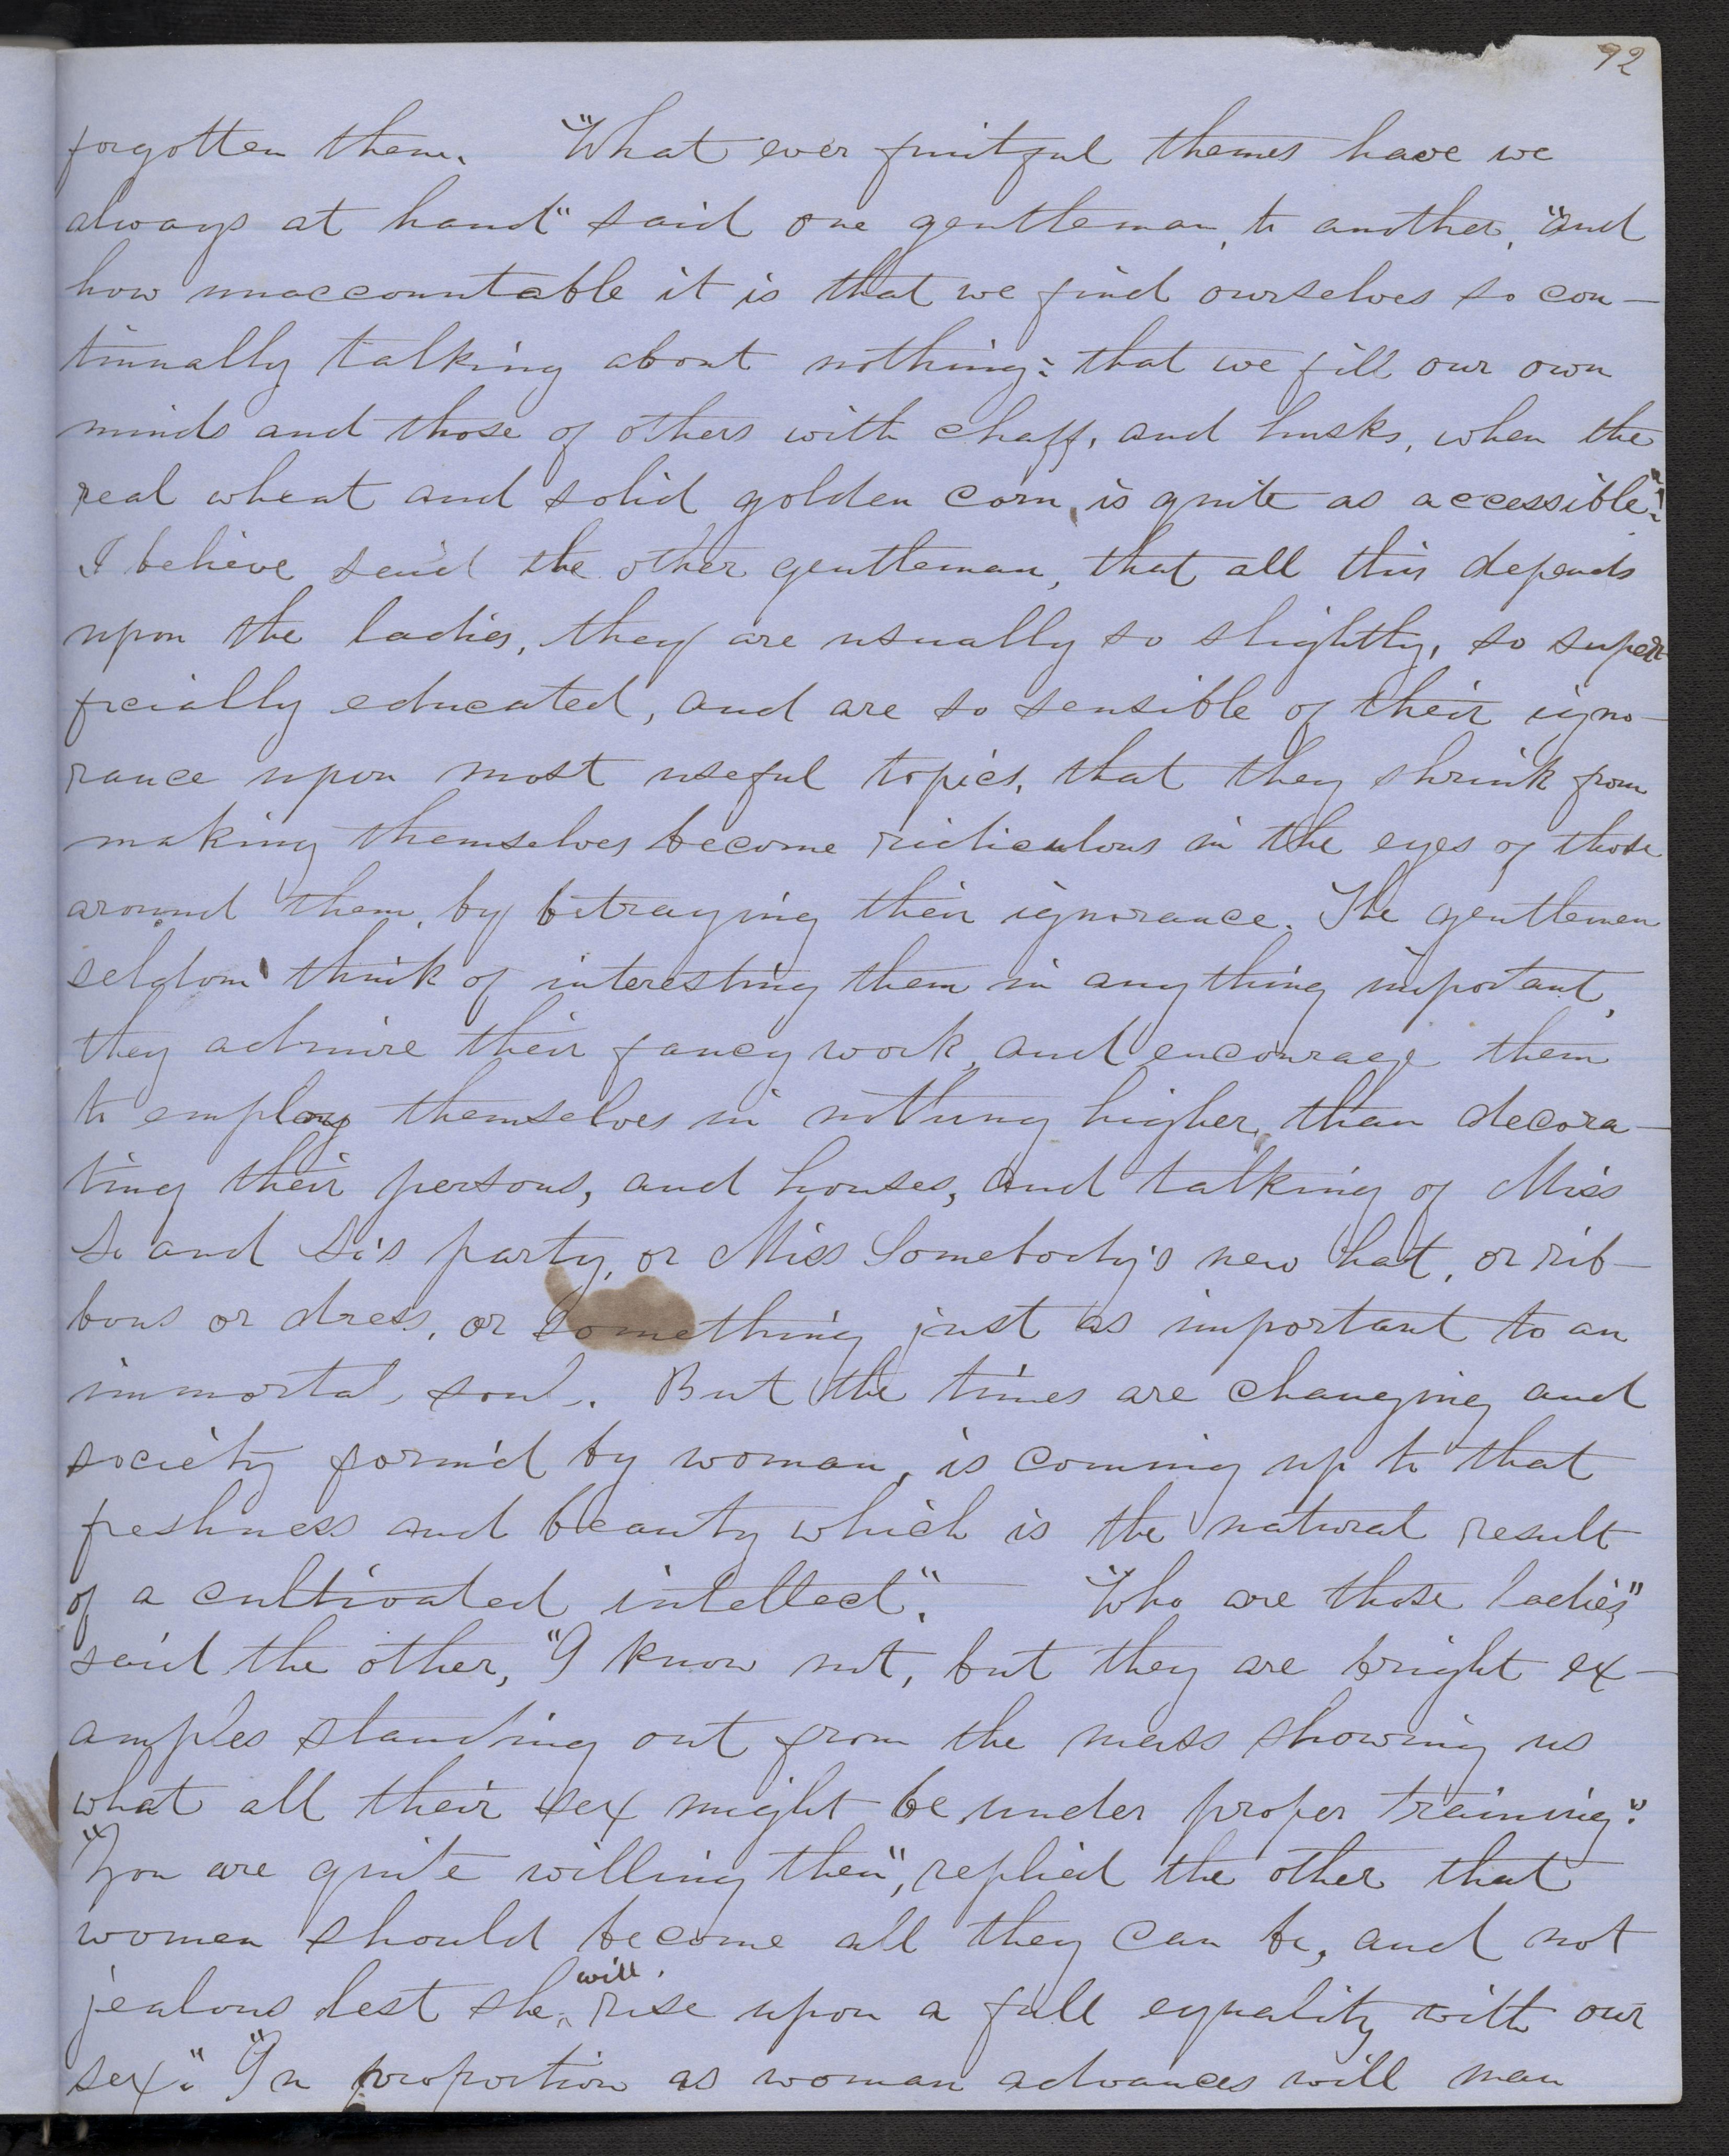 92
forgotten them. "What ever fruitful themes have we
always at hand" said one gentleman, to another, "and
how unaccountable it is that we find ourselves so con-
tinually talking about nothing: that we fill our own
minds and those of others with chaff, and husks, when the
real wheat and solid golden corn, is quite as accessible"!
I believe said the other gentleman, that all this depends
upon the ladies, they are usually so slightly, so super
ficially educated, and are so sensible of their igno-
rance upon most useful topics, that they shrink from
making themselves become ridiculous in the eyes of those
around them, by betraying their ignorance. The gentlemen
seldom think of interesting them in anything important,
they admire their fancy work, and encourage them
to employ themselves in nothing higher, than decora-
ting their persons, and houses, and talking of Miss
So and So's party, or Miss Somebody's new hat, or rib-
bons or dress, or something just as important to an
immortal soul. But the times are changing and
society form'd by woman, is coming up to that
freshness and beauty which is the natural result
of a cultivated intellect". "Who are those ladies,"
said the other, "I know not, but they are bright ex-
amples standing out from the mass showing us
what all their sex might be under proper training".
"You are quite willing then", replied the other that
women should become all they can be, and not
jealous lest she will rise upon a full equality with our
sex." "In proportion as woman advances will man